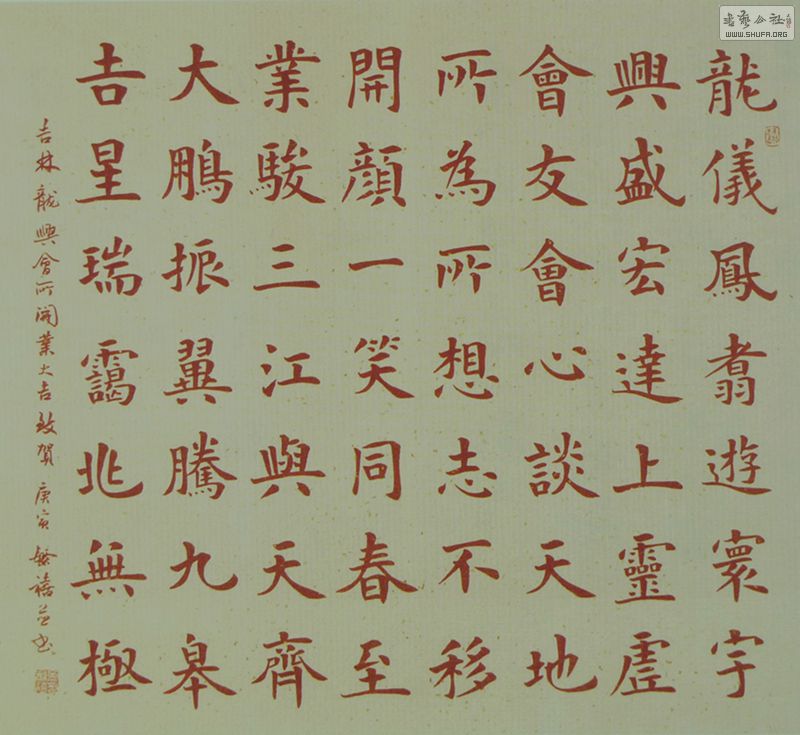 龍儀鳳翥遊寰宇
興盛宏達上靈虛
會友會心談天地
所為所想志不移
開顏一笑同春至
業駿三江與天齊
大鵬振翼騰九皋
吉星瑞靄兆無極
吉林龍興會所開業大吉致賀 庚寅 書
書藝公社
WWW.SHUFA.ORG